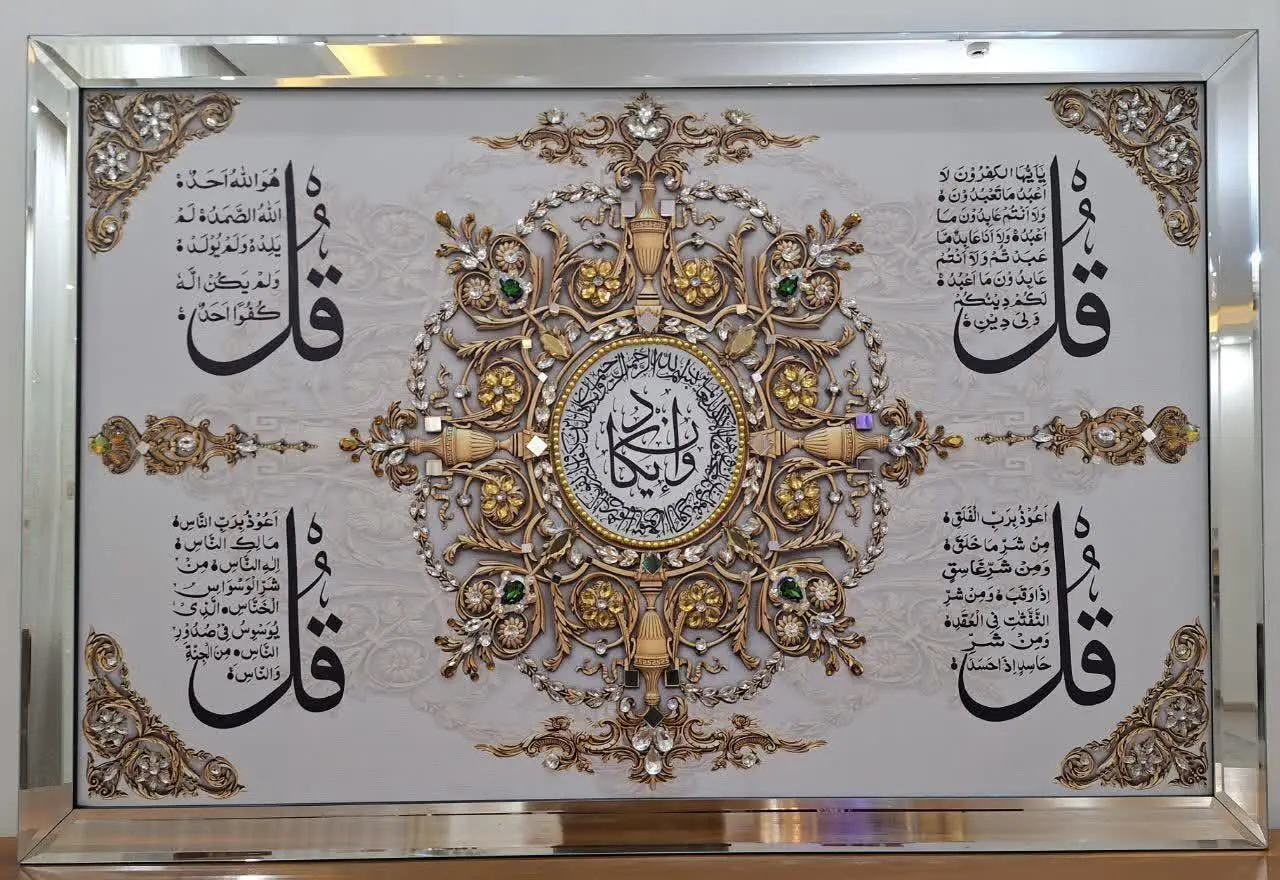 قُلْ
يَاَيُّهَا الكٰفِرُوْنَ لَا
اَعْبُدُ مَا تَعْبُدُوْنَ ۝
وَلَا اَنْتُمْ عَابِدُوْنَ مَا
اَعْبُدُ ۝ وَلَا اَنَا عَابِدٌ مَّا
عَبَدْتُّمْ وَلَا اَنْتُمْ
عَابِدُوْنَ مَا اَعْبُدُ ۝
لَكُمْ دِيْنُكُمْ
وَلِيَ دِيْنِ ۝
قُلْ
هُوَ اللهُ اَحَدٌ ۝
اَللهُ الصَّمَدُ ۝ لَمْ
يَلِدْ ۝ وَلَمْ يُوْلَدْ ۝
وَلَمْ يَكُنْ لَهُ
كُفُوًا اَحَدٌ ۝
وَإِن يكاد
قُلْ
اَعُوْذُ بِرَبِّ الْفَلَقِ ۝
مِنْ شَرِّ مَا خَلَقَ ۝
وَمِنْ شَرِّ غَاسِقٍ
اِذَا وَقَبَ ۝ وَمِنْ شَرِّ
النَّفّٰثٰتِ فِي الْعُقَدِ ۝
وَمِنْ شَرِّ
حَاسِدٍ اِذَا حَسَدَ ۝
قُلْ
اَعُوْذُ بِرَبِّ النَّاسِ ۝
مَالِكِ النَّاسِ ۝
اِلٰهِ النَّاسِ ۝ مِنْ
شَرِّ الْوَسْوَاسِ
الْخَنَّاسِ ۝ الَّذِي
يُوَسْوِسُ فِي صُدُوْرِ
النَّاسِ ۝ مِنَ الْجِنَّةِ
وَالنَّاسِ ۝